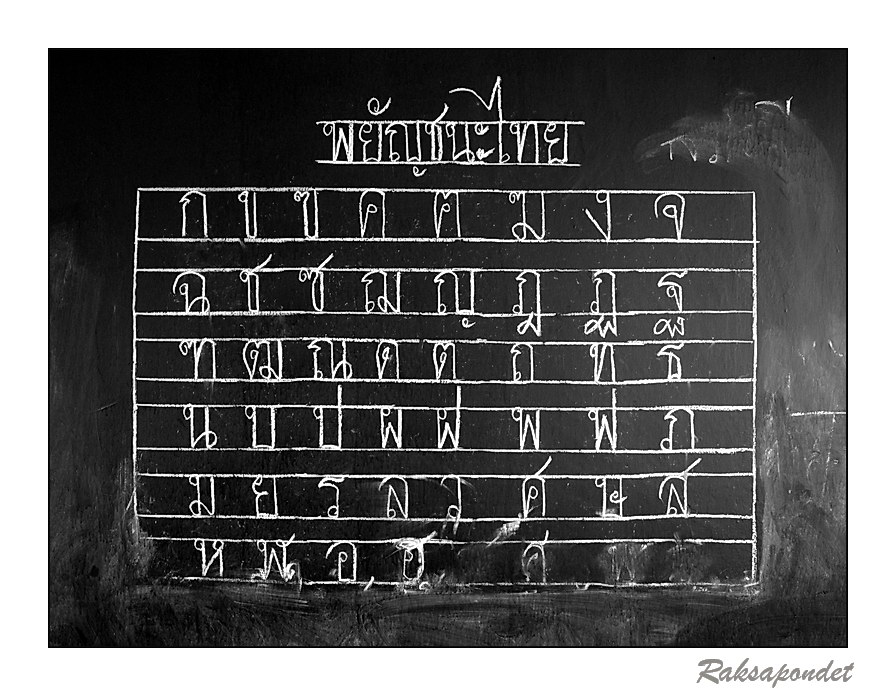 พยัญชนะไทย
ก ข ฃ ค ฅ ฆ ง จ
ฉ ช ซ ฌ ญ ฎ ฏ ฐ
ฑ ฒ ณ ด ต ถ ท ธ
น บ ป ผ ฝ พ ฟ ภ
ม ย ร ล ว ศ ษ ส
ห ฬ อ ฮ
Raksapondet